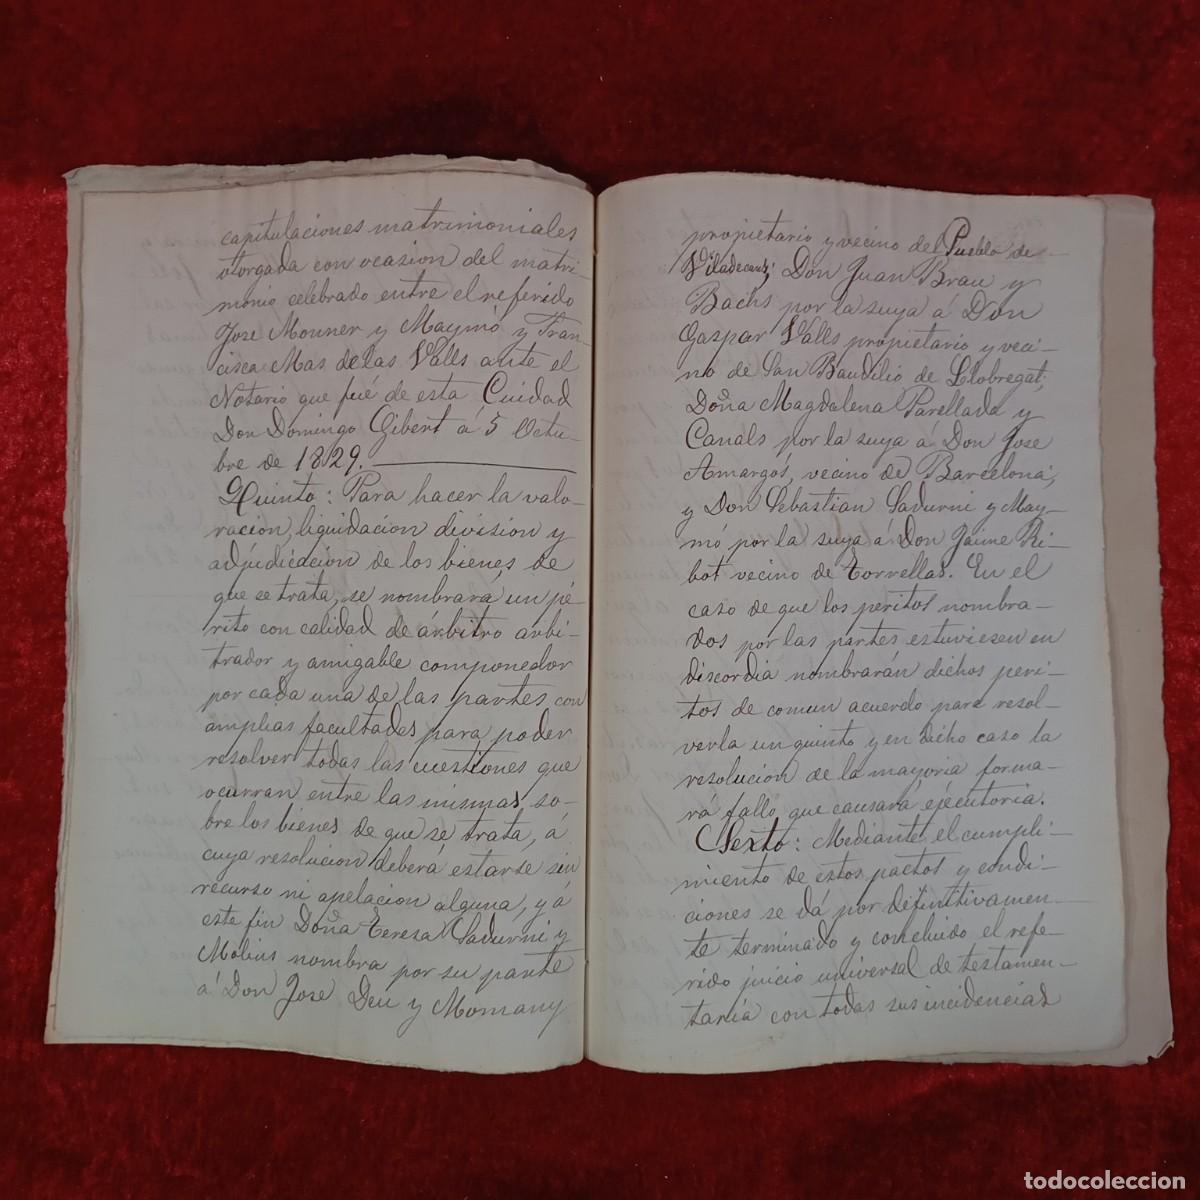 capitulaciones matrimoniales
otorgada con ocasion del matri-
monio celebrado entre el referido
Jose Monner y Maymó y Fran-
cisca Mas de las Valls ante el
Notario que fué de esta Cuidad
Don Domingo Gibert á 5 Octu-
bre de 1829.
Quinto: Para hacer la valo-
racion, liquidacion division y
adjudicacion de los bienes de
que se trata, se nombrará un pe-
rito con calidad de árbitro arbi-
trador y amigable componedor
por cada una de las partes con
amplias facultades para poder
resolver todas las cuestiones que
ocurran entre las mismas so-
bre los bienes de que se trata, á
cuya resolucion deberá estarse sin
recurso ni apelacion alguna, y á
este fin Doña Teresa Sadurni y
Molins nombra por su parte
á Don Jose Deu y Momany
propietario y vecino del Pueblo de
Viladecans; Don Juan Brau y
Bachs por la suya á Don
Gaspar Valls propietario y veci-
no de San Baudilio de Llobregat;
Doña Magdalena Parellada y
Canals por la suya á Don Jose
Amargós, vecino de Barcelona;
y Don Sebastian Sadurni y May-
mó por la suya á Don Jaime Ri-
bot vecino de Torrellas. En el
caso de que los peritos nombra-
dos por las partes estuviesen en
discordia nombrarán dichos peri-
tos de comun acuerdo para resol-
verla un quinto y en dicho caso la
resolucion de la mayoria forma-
rá fallo que causará ejecutoria.
Sexto: Mediante el cumpli-
miento de estos pactos y condi-
ciones se dá por definitivamen-
te terminado y concluido el refe-
rido juicio universal de testamen-
taria con todas sus incidencias
todocoleccion